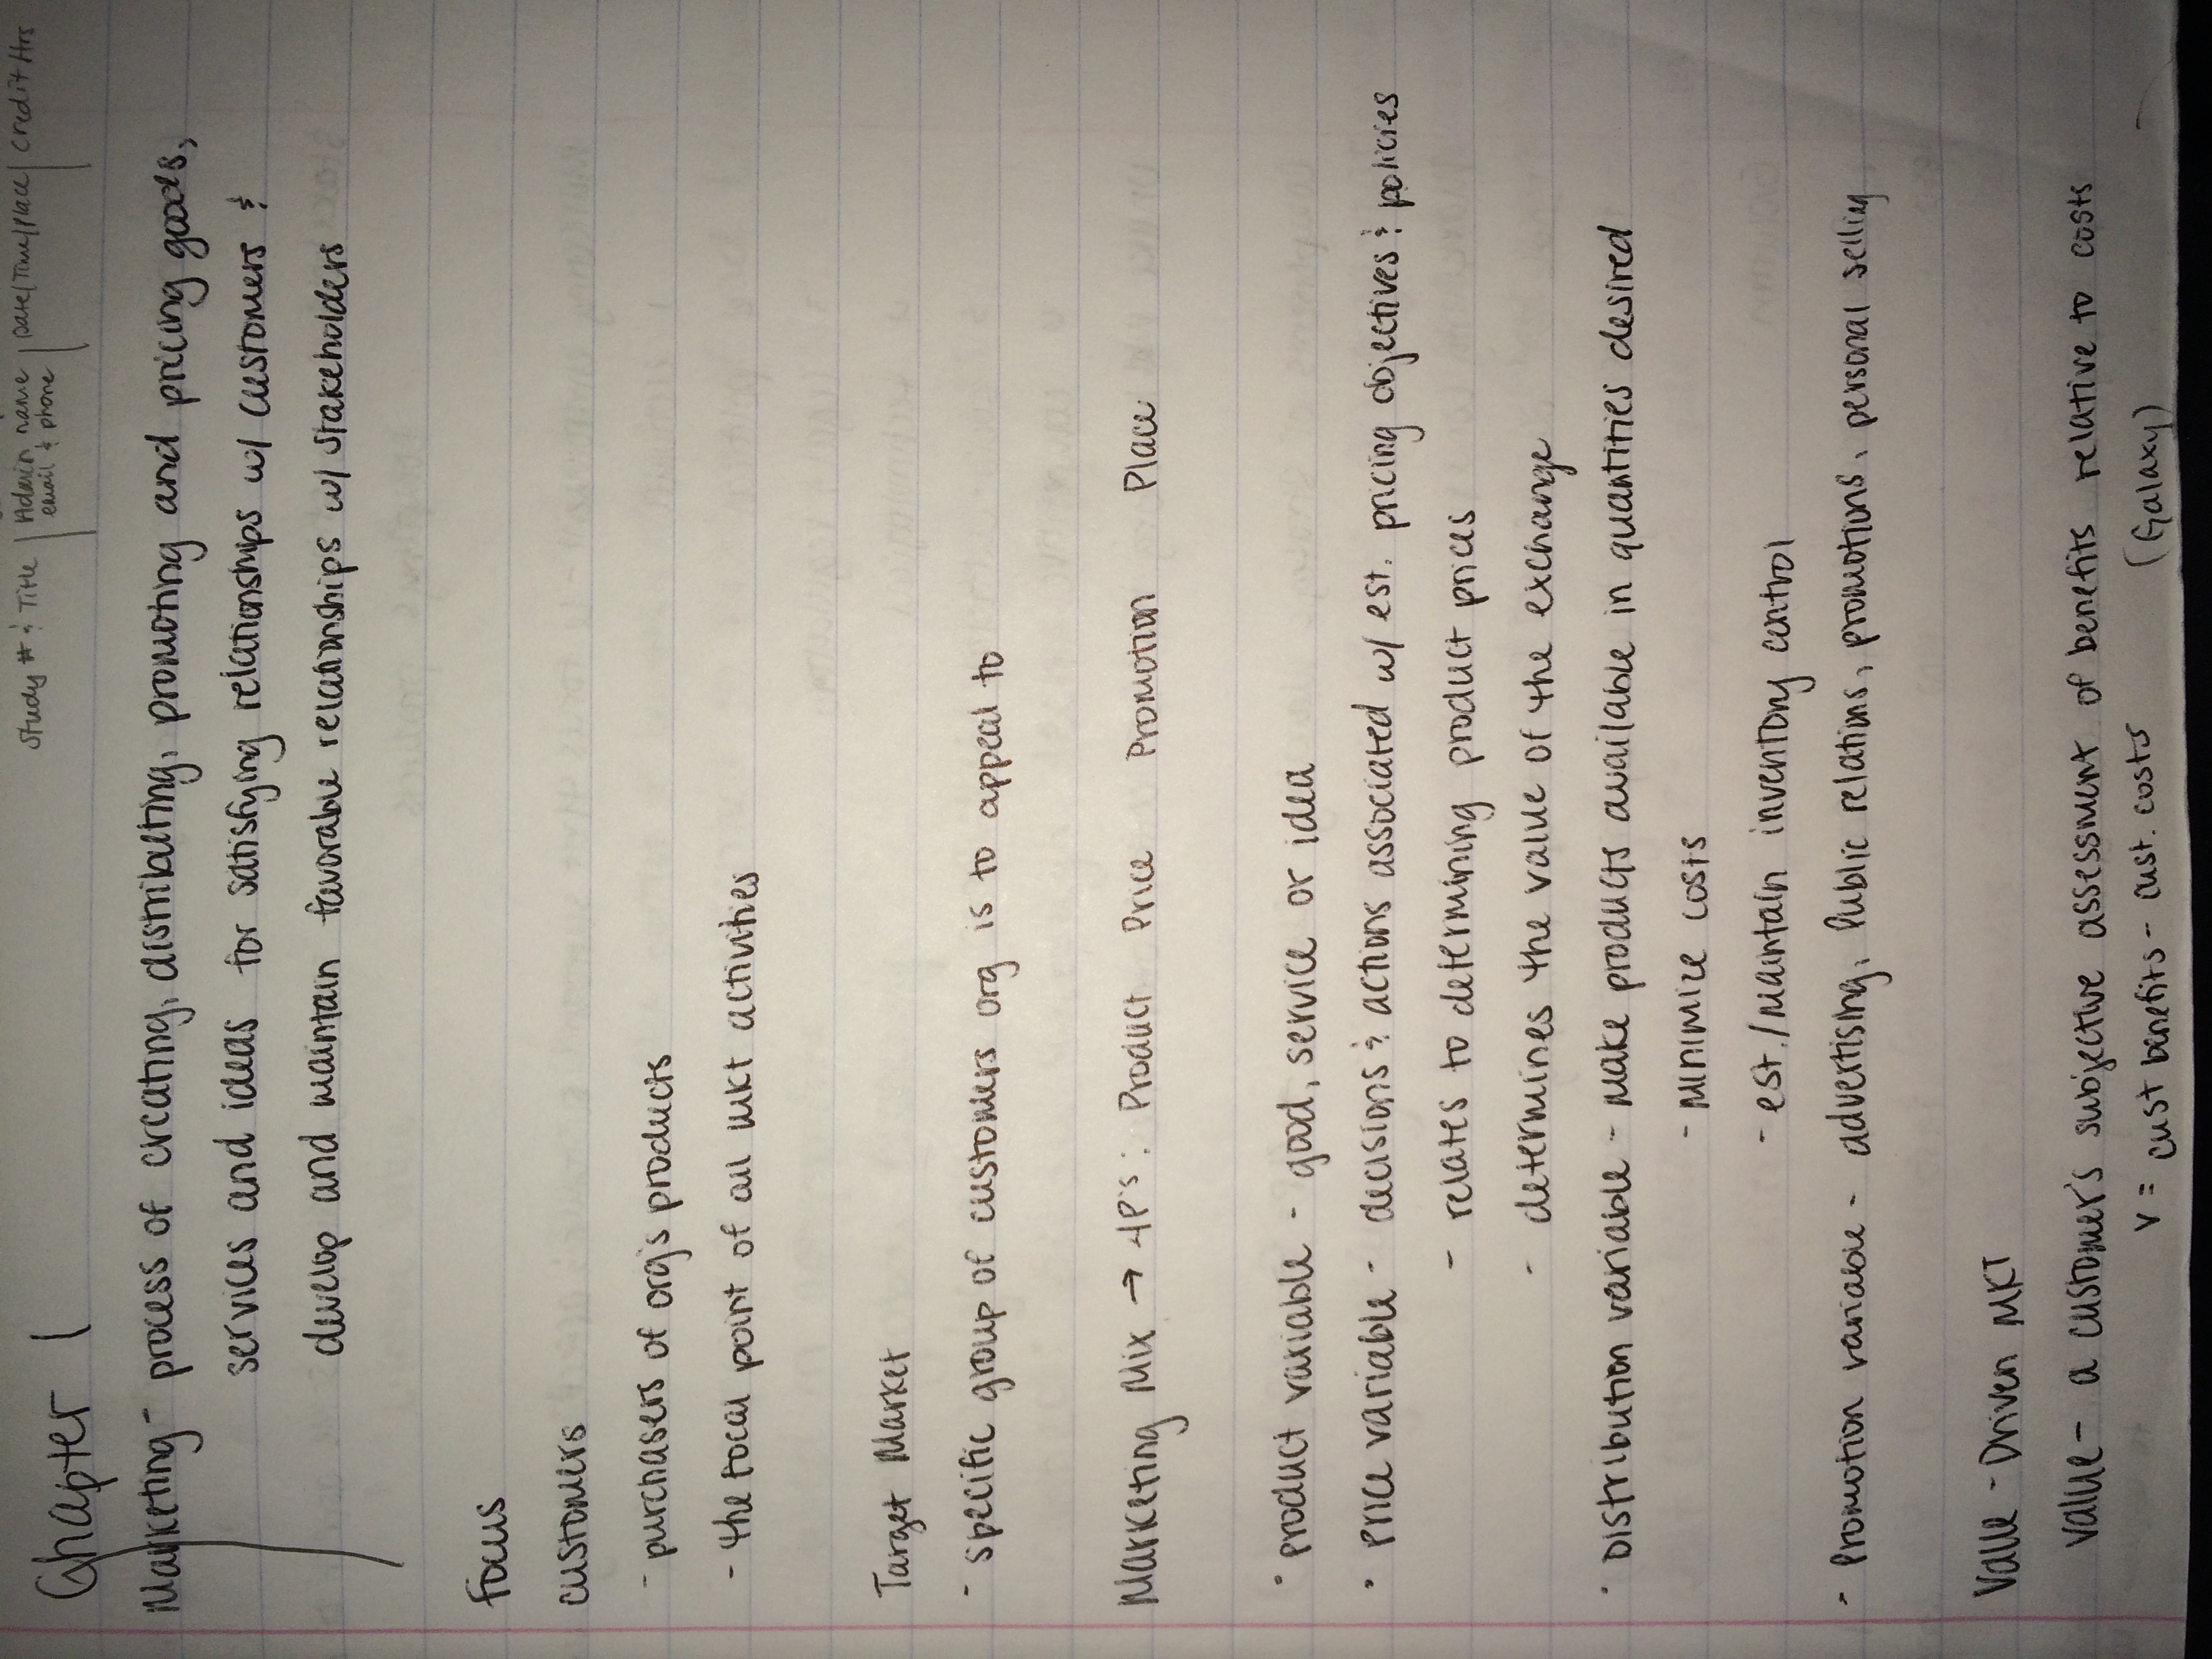 Study # & Title | Admin name | Date/Time/Place | Credit Hrs
email & phone
Chapter 1
Marketing - process of creating, distributing, promoting and pricing goods,
services and ideas for satisfying relationships w/ customers &
develop and maintain favorable relationships w/ stakeholders
Focus
customers
- purchasers of org's products
- the focal point of all mkt activities
Target Market
- specific group of customers org is to appeal to
Marketing Mix → 4P's: Product Price Promotion Place
• Product variable - good, service or idea
• Price variable - decisions & actions associated w/ est. pricing objectives & policies
- relates to determining product prices
- determines the value of the exchange
• Distribution variable - make products available in quantities desired
- minimize costs
- est./maintain inventory control
- Promotion variable - advertising, public relations, promotions, personal selling
Value-Driven MKT
Value - a customer's subjective assessment of benefits relative to costs
V = cust benefits - cust. costs (Galaxy)